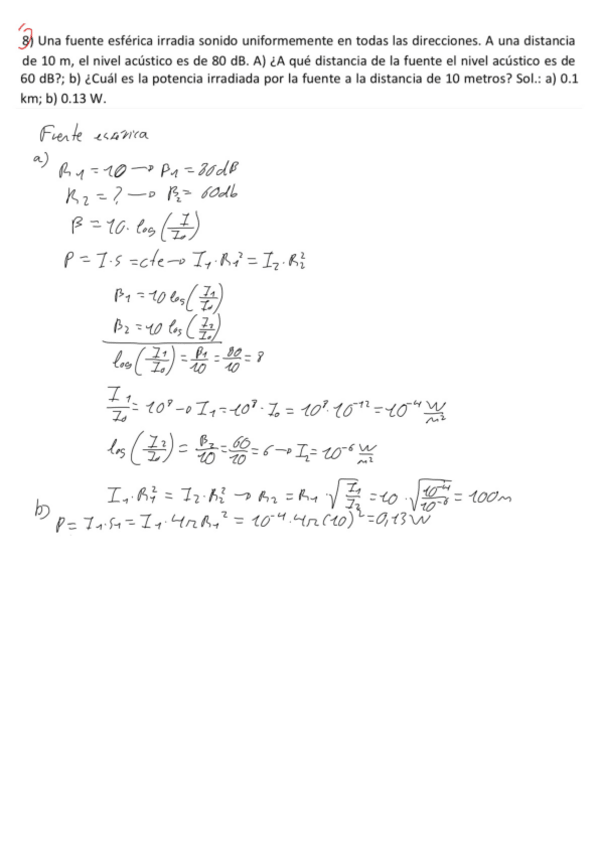 8) Una fuente esférica irradia sonido uniformemente en todas las direcciones. A una distancia
de 10 m, el nivel acústico es de 80 dB. A) ¿A qué distancia de la fuente el nivel acústico es de
60 dB?; b) ¿Cuál es la potencia irradiada por la fuente a la distancia de 10 metros? Sol.: a) 0.1
km; b) 0.13 W.
Fuente esférica
a)
R₁ = 10 → β₁ = 80 dB
R₂ = ? → β₂ = 60 db
β = 10 · log (I/I₀)
P = I · S = cte → I₁ · R₁² = I₂ · R₂²
β₁ = 10 log (I₁/I₀)
β₂ = 10 log (I₂/I₀)
log (I₁/I₀) = β₁/10 = 80/10 = 8
I₁/I₀ = 10⁸ → I₁ = 10⁸ · I₀ = 10⁸ · 10⁻¹² = 10⁻⁴ W/m²
log (I₂/I₀) = β₂/10 = 60/10 = 6 → I₂ = 10⁻⁶ W/m²
I₁ · R₁² = I₂ · R₂² → R₂ = R₁ · √(I₁/I₂) = 10 · √(10⁻⁴/10⁻⁶) = 100 m
b) P = I₁ · S₁ = I₁ · 4π R₁² = 10⁻⁴ · 4π (10)² = 0,13 W